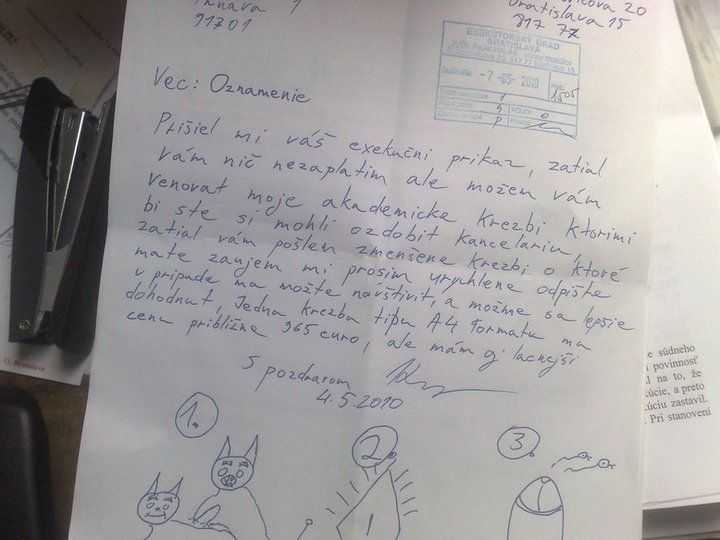 Trnava
91701
20
Bratislava 15
817 77
EXEKÚTORSKÝ ÚRAD
BRATISLAVA
-7 -05- 2010
Vec: Oznamenie
Prišiel mi váš exekučni prikaz, zatial
vám nič nezaplatim ale možem vám
venovat moje akademicke krezbi ktorimi
bi ste si mohli ozdobit kancelariu,
zatial vám pošlem zmenšene krezbi o ktoré
mate zaujem mi prosim urychlene odpište
v pripade ma možte navštivit, a možme sa lepšie
dohodnut, Jedna krezba tipu A4 formatu ma
cenu približne 365 euro, ale mám aj lacnejši
S pozdravom
4.5.2010
1.
2.
3.
e súdneho
i povinnosť
na to, že
kúcie, a preto
kúciu zastavil.
Pri stanovení